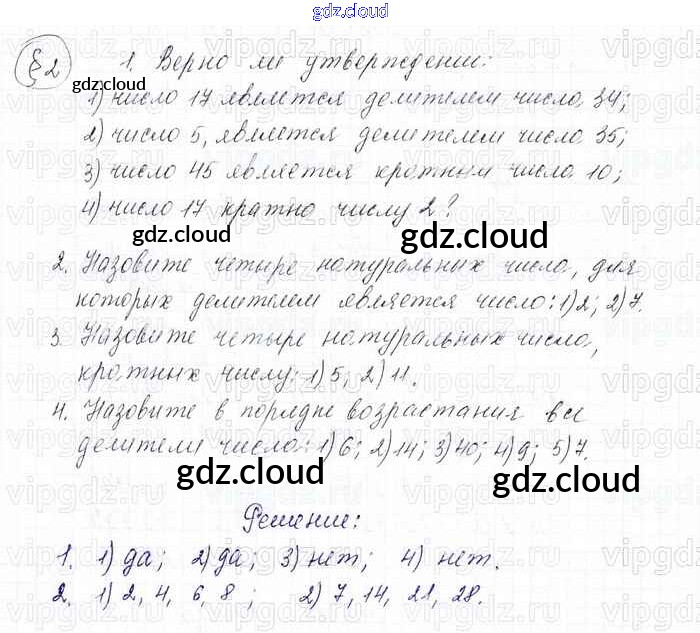 gdz.cloud
§2 1. Верно ли утверждении:
gdz.cloud
1) число 17 является делителем числа 34;
2) число 5, является делителем число 35;
3) число 45 является кратным числа 10;
4) число 17 кратно числу 2?
gdz.cloud gdz.cloud
2. Назовите четыре натуральных числа, для
которых делителем является число: 1) 2; 2) 7.
3. Назовите четыре натуральных числа,
кратных числу: 1) 5; 2) 11.
4. Назовите в порядке возрастания все
делители числа: 1) 6; 2) 14; 3) 40; 4) 9; 5) 7.
gdz.cloud gdz.cloud
Решение:
1. 1) да; 2) да; 3) нет; 4) нет.
2. 1) 2, 4, 6, 8; 2) 7, 14, 21, 28.